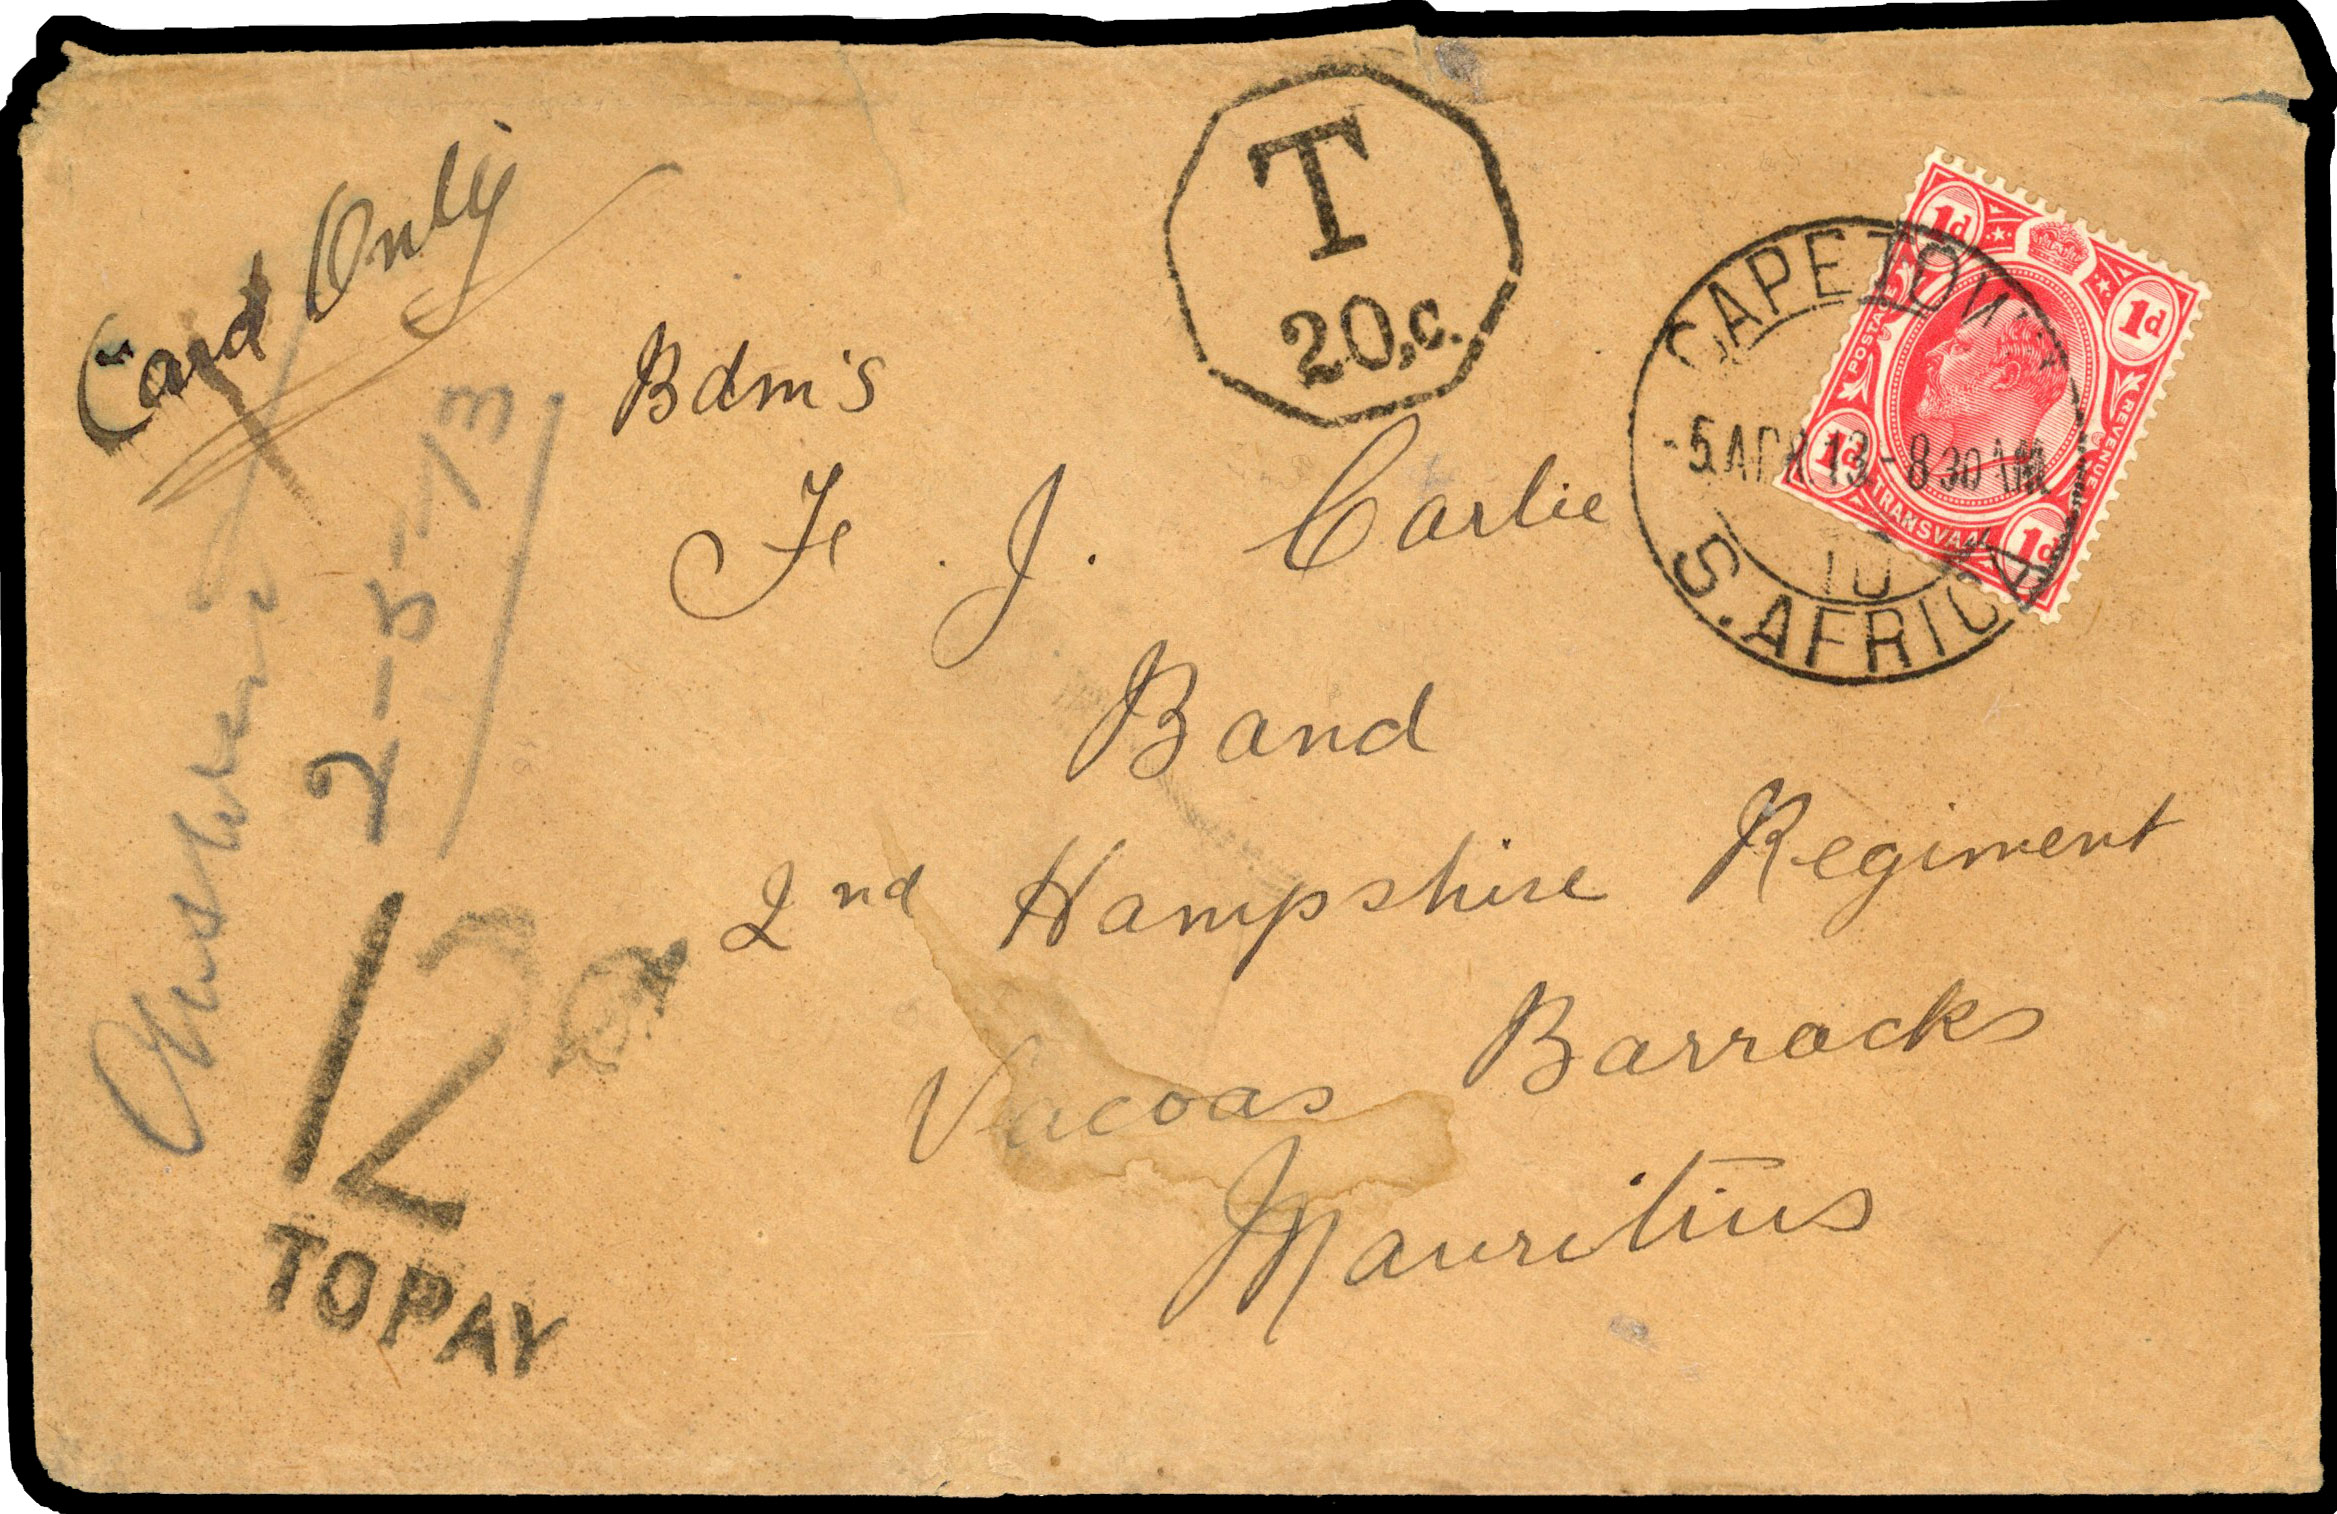 Card Only
T
20.c.
CAPETOWN
-5 APR 13 - 8 30 AM
10
S. AFRICA
1d
1d
POSTAGE
REVENUE
TRANSVAAL
1d
1d
Bdm's
J. Carlie
Band
2nd Hampshire Regiment
Vacoas Barracks
Mauritius
2-5-13
12
TO PAY